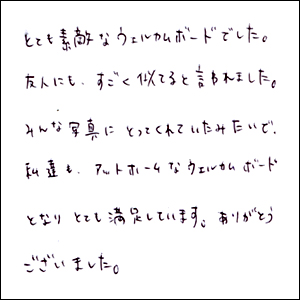 とても素敵なウェルカムボードでした。
友人にも、すごく似てると言われました。
みんな写真にとってくれていたみたいで、
私達も、アットホームなウェルカムボード
となりとても満足しています。ありがとう
ございました。